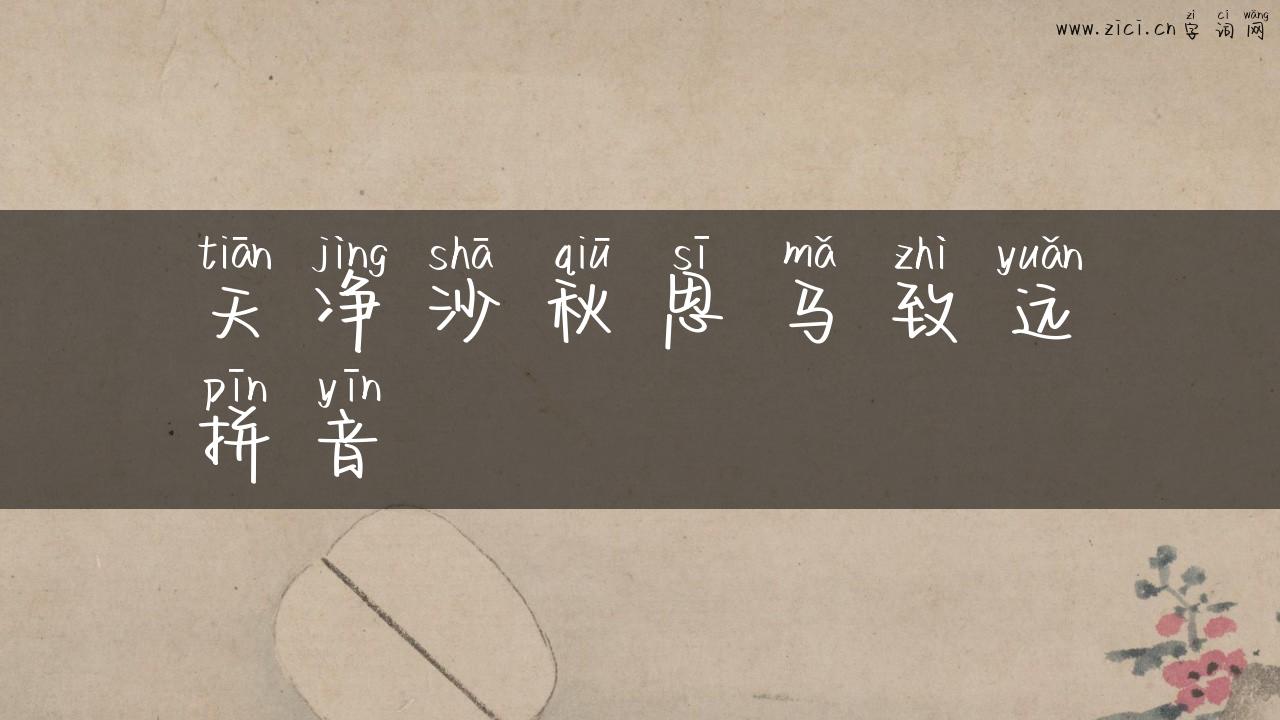 zì cí wǎng
www.zici.cn 字词网
tiān jìng shā qiū sī mǎ zhì yuǎn
天净沙秋思马致远
pīn yīn
拼音